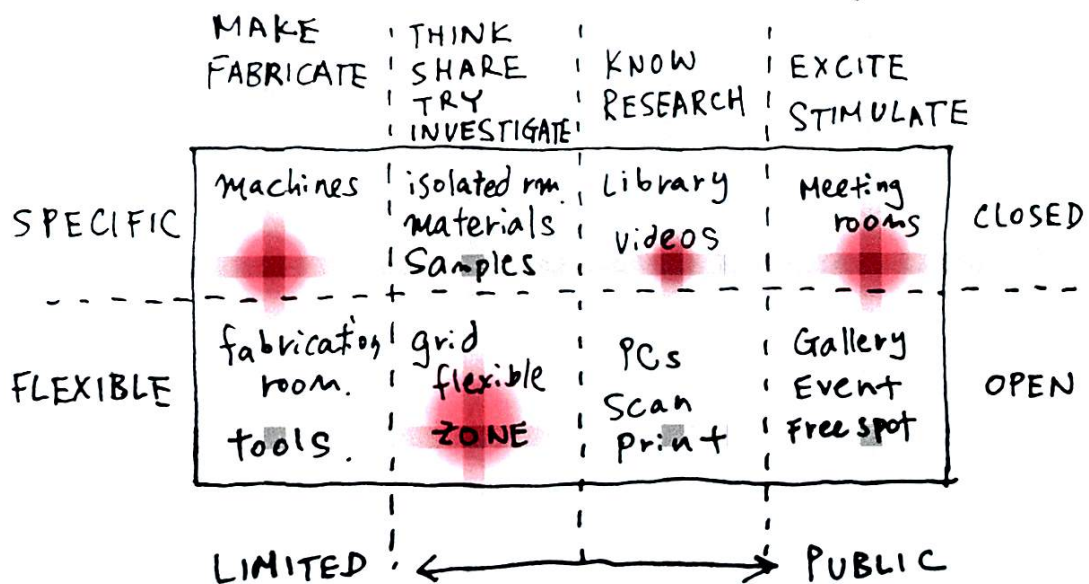 MAKE
FABRICATE
THINK
SHARE
TRY
INVESTIGATE
KNOW
RESEARCH
EXCITE
STIMULATE
SPECIFIC
machines
isolated rm.
materials
Samples
Library
videos
Meeting
rooms
CLOSED
FLEXIBLE
fabrication
room.
tools.
grid
flexible
ZONE
PCs
Scan
print
Gallery
Event
Free spot
OPEN
LIMITED
PUBLIC